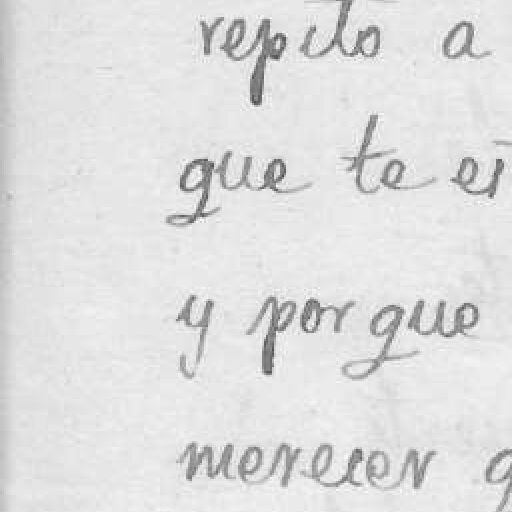 repito a
que te
y porque
merecer